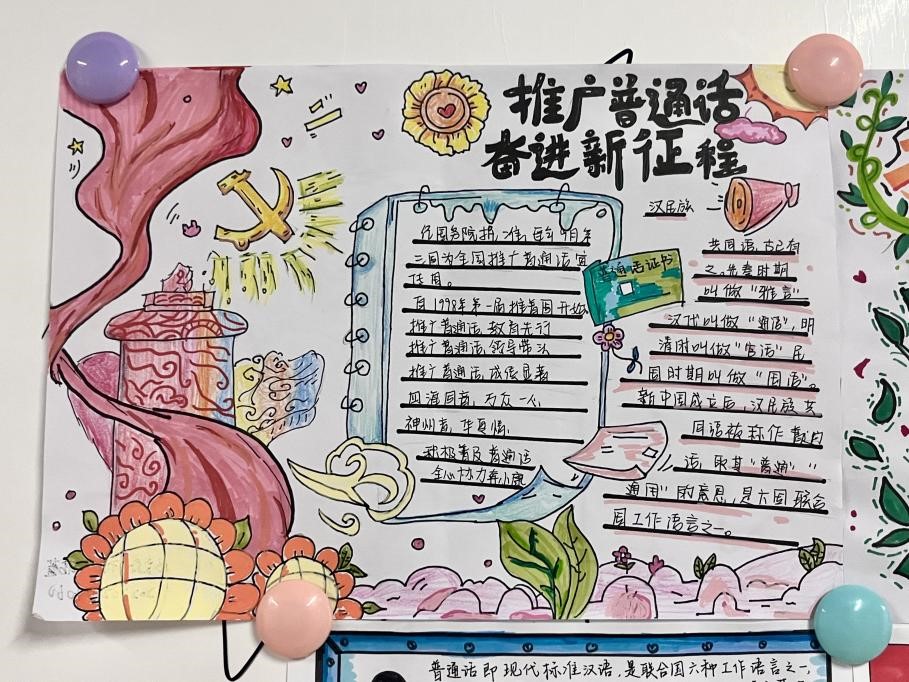 推广普通话
奋进新征程
经国务院批准,每年9月第
三周为全国推广普通话宣
传周。
自1998年第一届推普周开始
推广普通话,教育先行
推广普通话,领导带头
推广普通话,成绩显著
四海同音,万众一心
神州音,华夏情
积极普及普通话
全心协力奔小康
普通话证书
汉民族
共同语,古已有
之。先秦时期
叫做“雅言”
汉代叫做“通语”,明
清时叫做“官话”民
国时期叫做“国语”。
新中国成立后,汉民族共
同语被称作普通
话,取其“普通”“
通用”的意思,是六国联合
国工作语言之一。
普通话即现代标准汉语,是联合国六种工作语言之一,